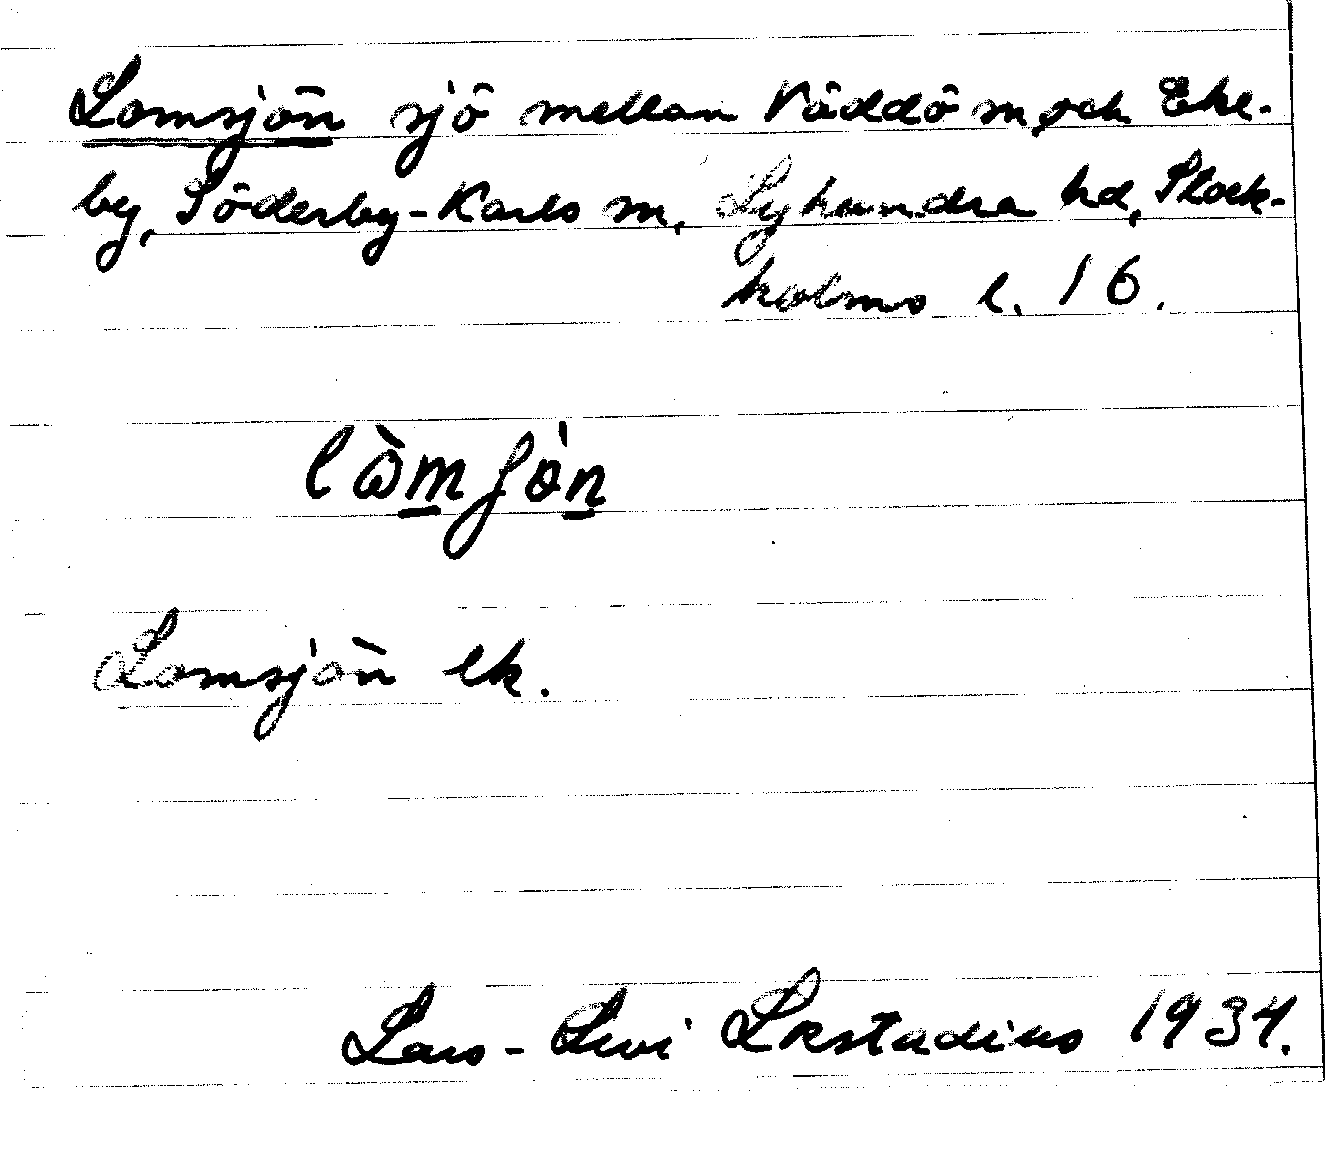 Lomsjön sjö mellan Väddö sn, och Eke-
by, Söderby-Karls sn, Lyhundra hd, Stock-
holms l. 16.
Lomsjön ek.
Lars-Levi Læstadius 1934.